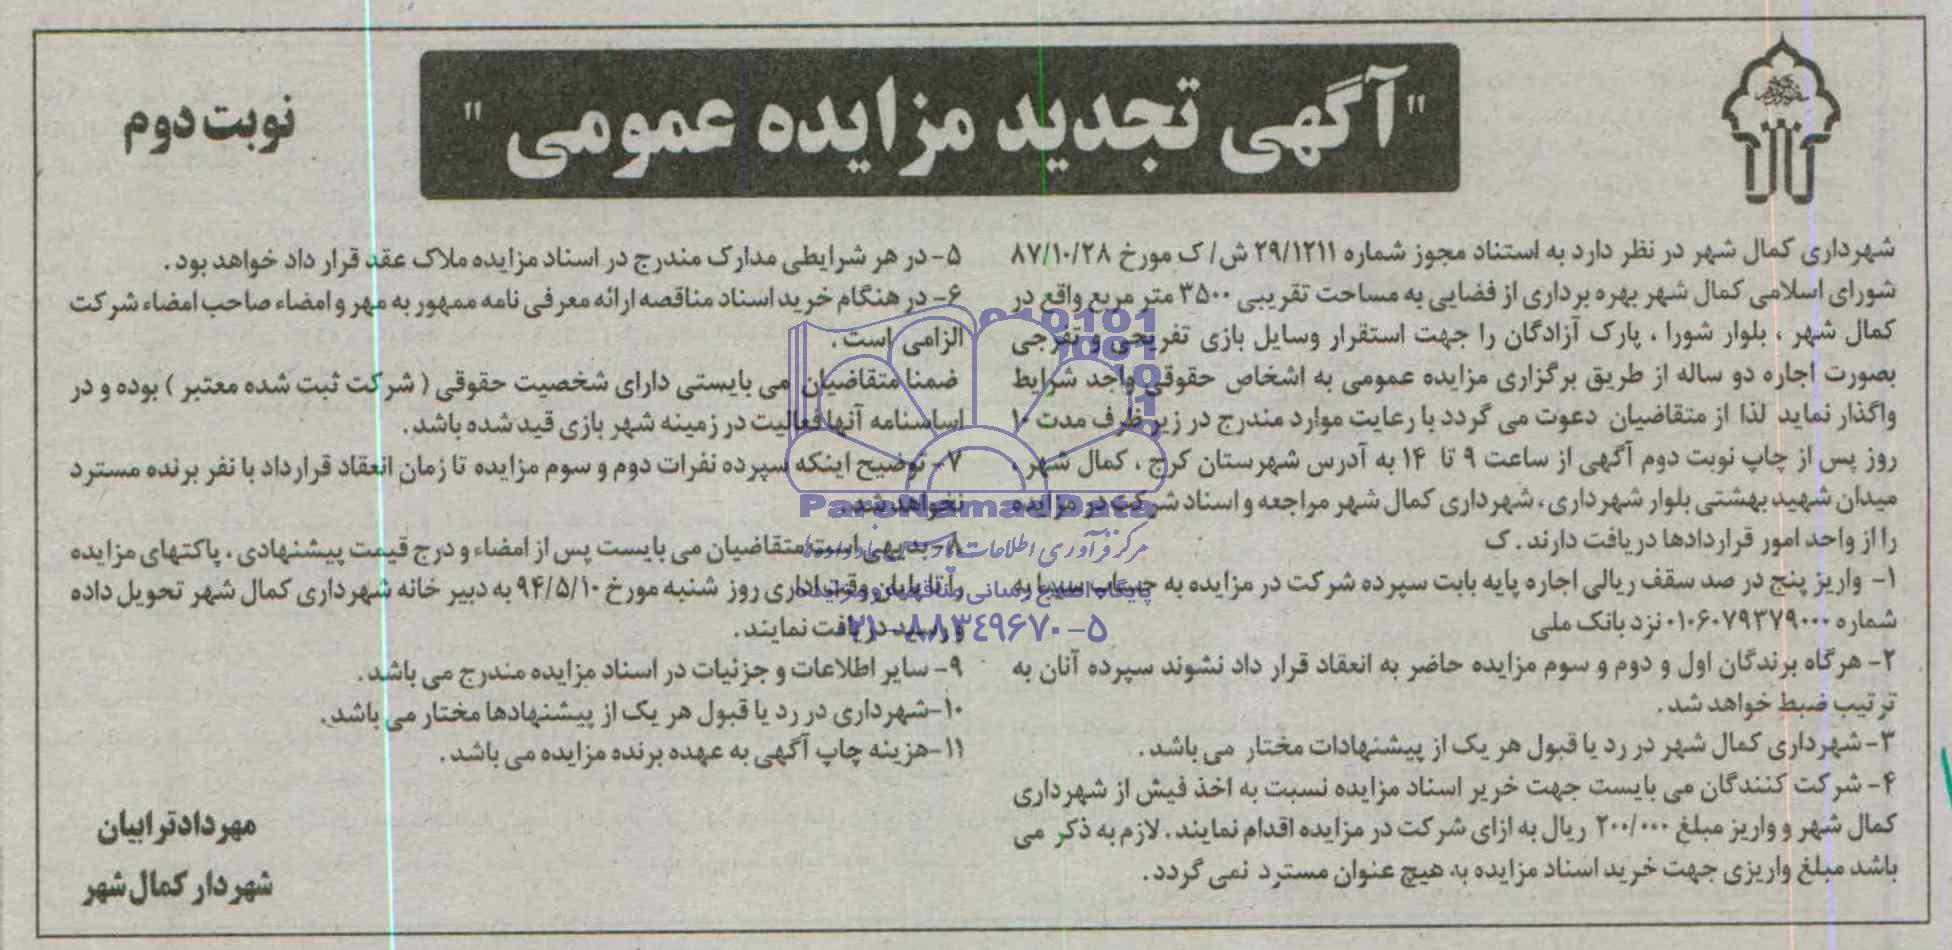 "آگهی تجدید مزایده عمومی"
نوبت دوم
شهرداری کمال شهر در نظر دارد به استناد مجوز شماره ۲۹/۱۲۱۱ ش/ک مورخ ۸۷/۱۰/۲۸
شورای اسلامی کمال شهر بهره برداری از فضایی به مساحت تقریبی ۳۵۰۰ متر مربع واقع در
کمال شهر ، بلوار شورا ، پارک آزادگان را جهت استقرار وسایل بازی تفریحی و تفرجی
بصورت اجاره دو ساله از طریق برگزاری مزایده عمومی به اشخاص حقوقی واجد شرایط
واگذار نماید لذا از متقاضیان دعوت می گردد با رعایت موارد مندرج در زیر ظرف مدت ۱۰
روز پس از چاپ نوبت دوم آگهی از ساعت ۹ تا ۱۴ به آدرس شهرستان کرج ، کمال شهر ،
میدان شهید بهشتی بلوار شهرداری ، شهرداری کمال شهر مراجعه و اسناد شرکت در مزایده
را از واحد امور قراردادها دریافت دارند . ک
۱- واریز پنج در صد سقف ریالی اجاره پایه بابت سپرده شرکت در مزایده به حساب سیبا به
شماره ۰۱۰۶۰۷۹۳۷۹۰۰۰ نزد بانک ملی
۲- هرگاه برندگان اول و دوم و سوم مزایده حاضر به انعقاد قرار داد نشوند سپرده آنان به
ترتیب ضبط خواهد شد .
۳- شهرداری کمال شهر در رد یا قبول هر یک از پیشنهادات مختار می باشد .
۴- شرکت کنندگان می بایست جهت خریر اسناد مزایده نسبت به اخذ فیش از شهرداری
کمال شهر و واریز مبلغ ۲۰۰/۰۰۰ ریال به ازای شرکت در مزایده اقدام نمایند . لازم به ذکر می
باشد مبلغ واریزی جهت خرید اسناد مزایده به هیچ عنوان مسترد نمی گردد .
۵- در هر شرایطی مدارک مندرج در اسناد مزایده ملاک عقد قرار داد خواهد بود .
۶- در هنگام خرید اسناد مناقصه ارائه معرفی نامه ممهور به مهر و امضاء صاحب امضاء شرکت
الزامی است .
ضمنا متقاضیان می بایستی دارای شخصیت حقوقی ( شرکت ثبت شده معتبر ) بوده و در
اساسنامه آنها فعالیت در زمینه شهر بازی قید شده باشد .
۷- توضیح اینکه سپرده نفرات دوم و سوم مزایده تا زمان انعقاد قرارداد با نفر برنده مسترد
نخواهد شد .
۸- بدیهی است متقاضیان می بایست پس از امضاء و درج قیمت پیشنهادی ، پاکتهای مزایده
را تا پایان وقت اداری روز شنبه مورخ ۹۴/۵/۱۰ به دبیر خانه شهرداری کمال شهر تحویل داده
و رسید دریافت نمایند .
۹- سایر اطلاعات و جزئیات در اسناد مزایده مندرج می باشد .
۱۰- شهرداری در رد یا قبول هر یک از پیشنهادها مختار می باشد .
۱۱- هزینه چاپ آگهی به عهده برنده مزایده می باشد .
مهرداد ترابیان
شهردار کمال شهر
ParsNamadData
مرکز فرآوری اطلاعات پارس نماد داده ها
پایگاه اطلاع رسانی مناقصه و مزایده
۰۲۱-۸۸۳۴۹۶۷۰-۵